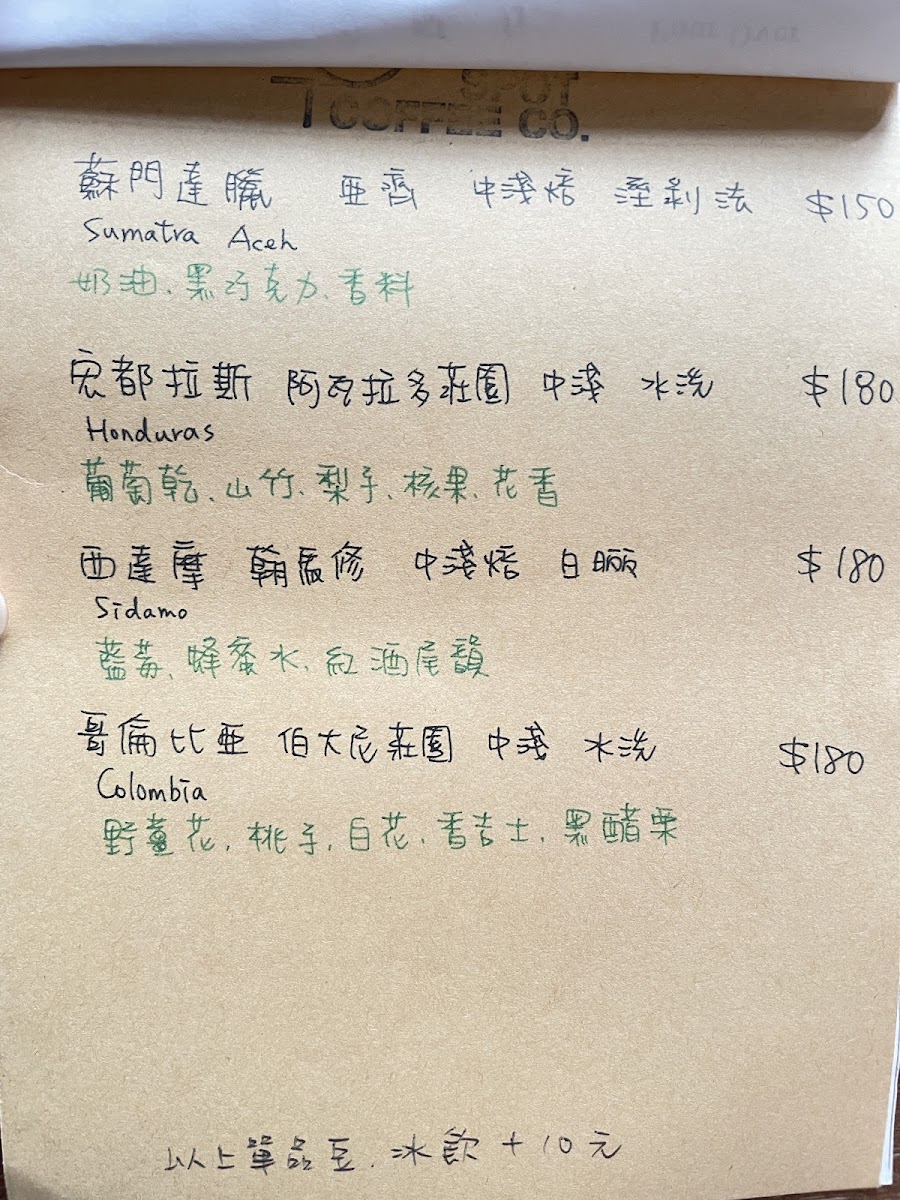 SPOT
COFFEE CO.
蘇門達臘 亞齊 中淺焙 溼剝法 $150
Sumatra Aceh
奶油、黑巧克力、香料
宏都拉斯 阿瓦拉多莊園 中淺 水洗 $180
Honduras
葡萄乾、山竹、梨子、核果、花香
西達摩 翰貝修 中淺焙 日曬 $180
Sidamo
藍莓、蜂蜜水、紅酒尾韻
哥倫比亞 伯大尼莊園 中淺 水洗 $180
Colombia
野薑花、桃子、白花、香吉士、黑醋栗
以上單品豆、冰飲+10元